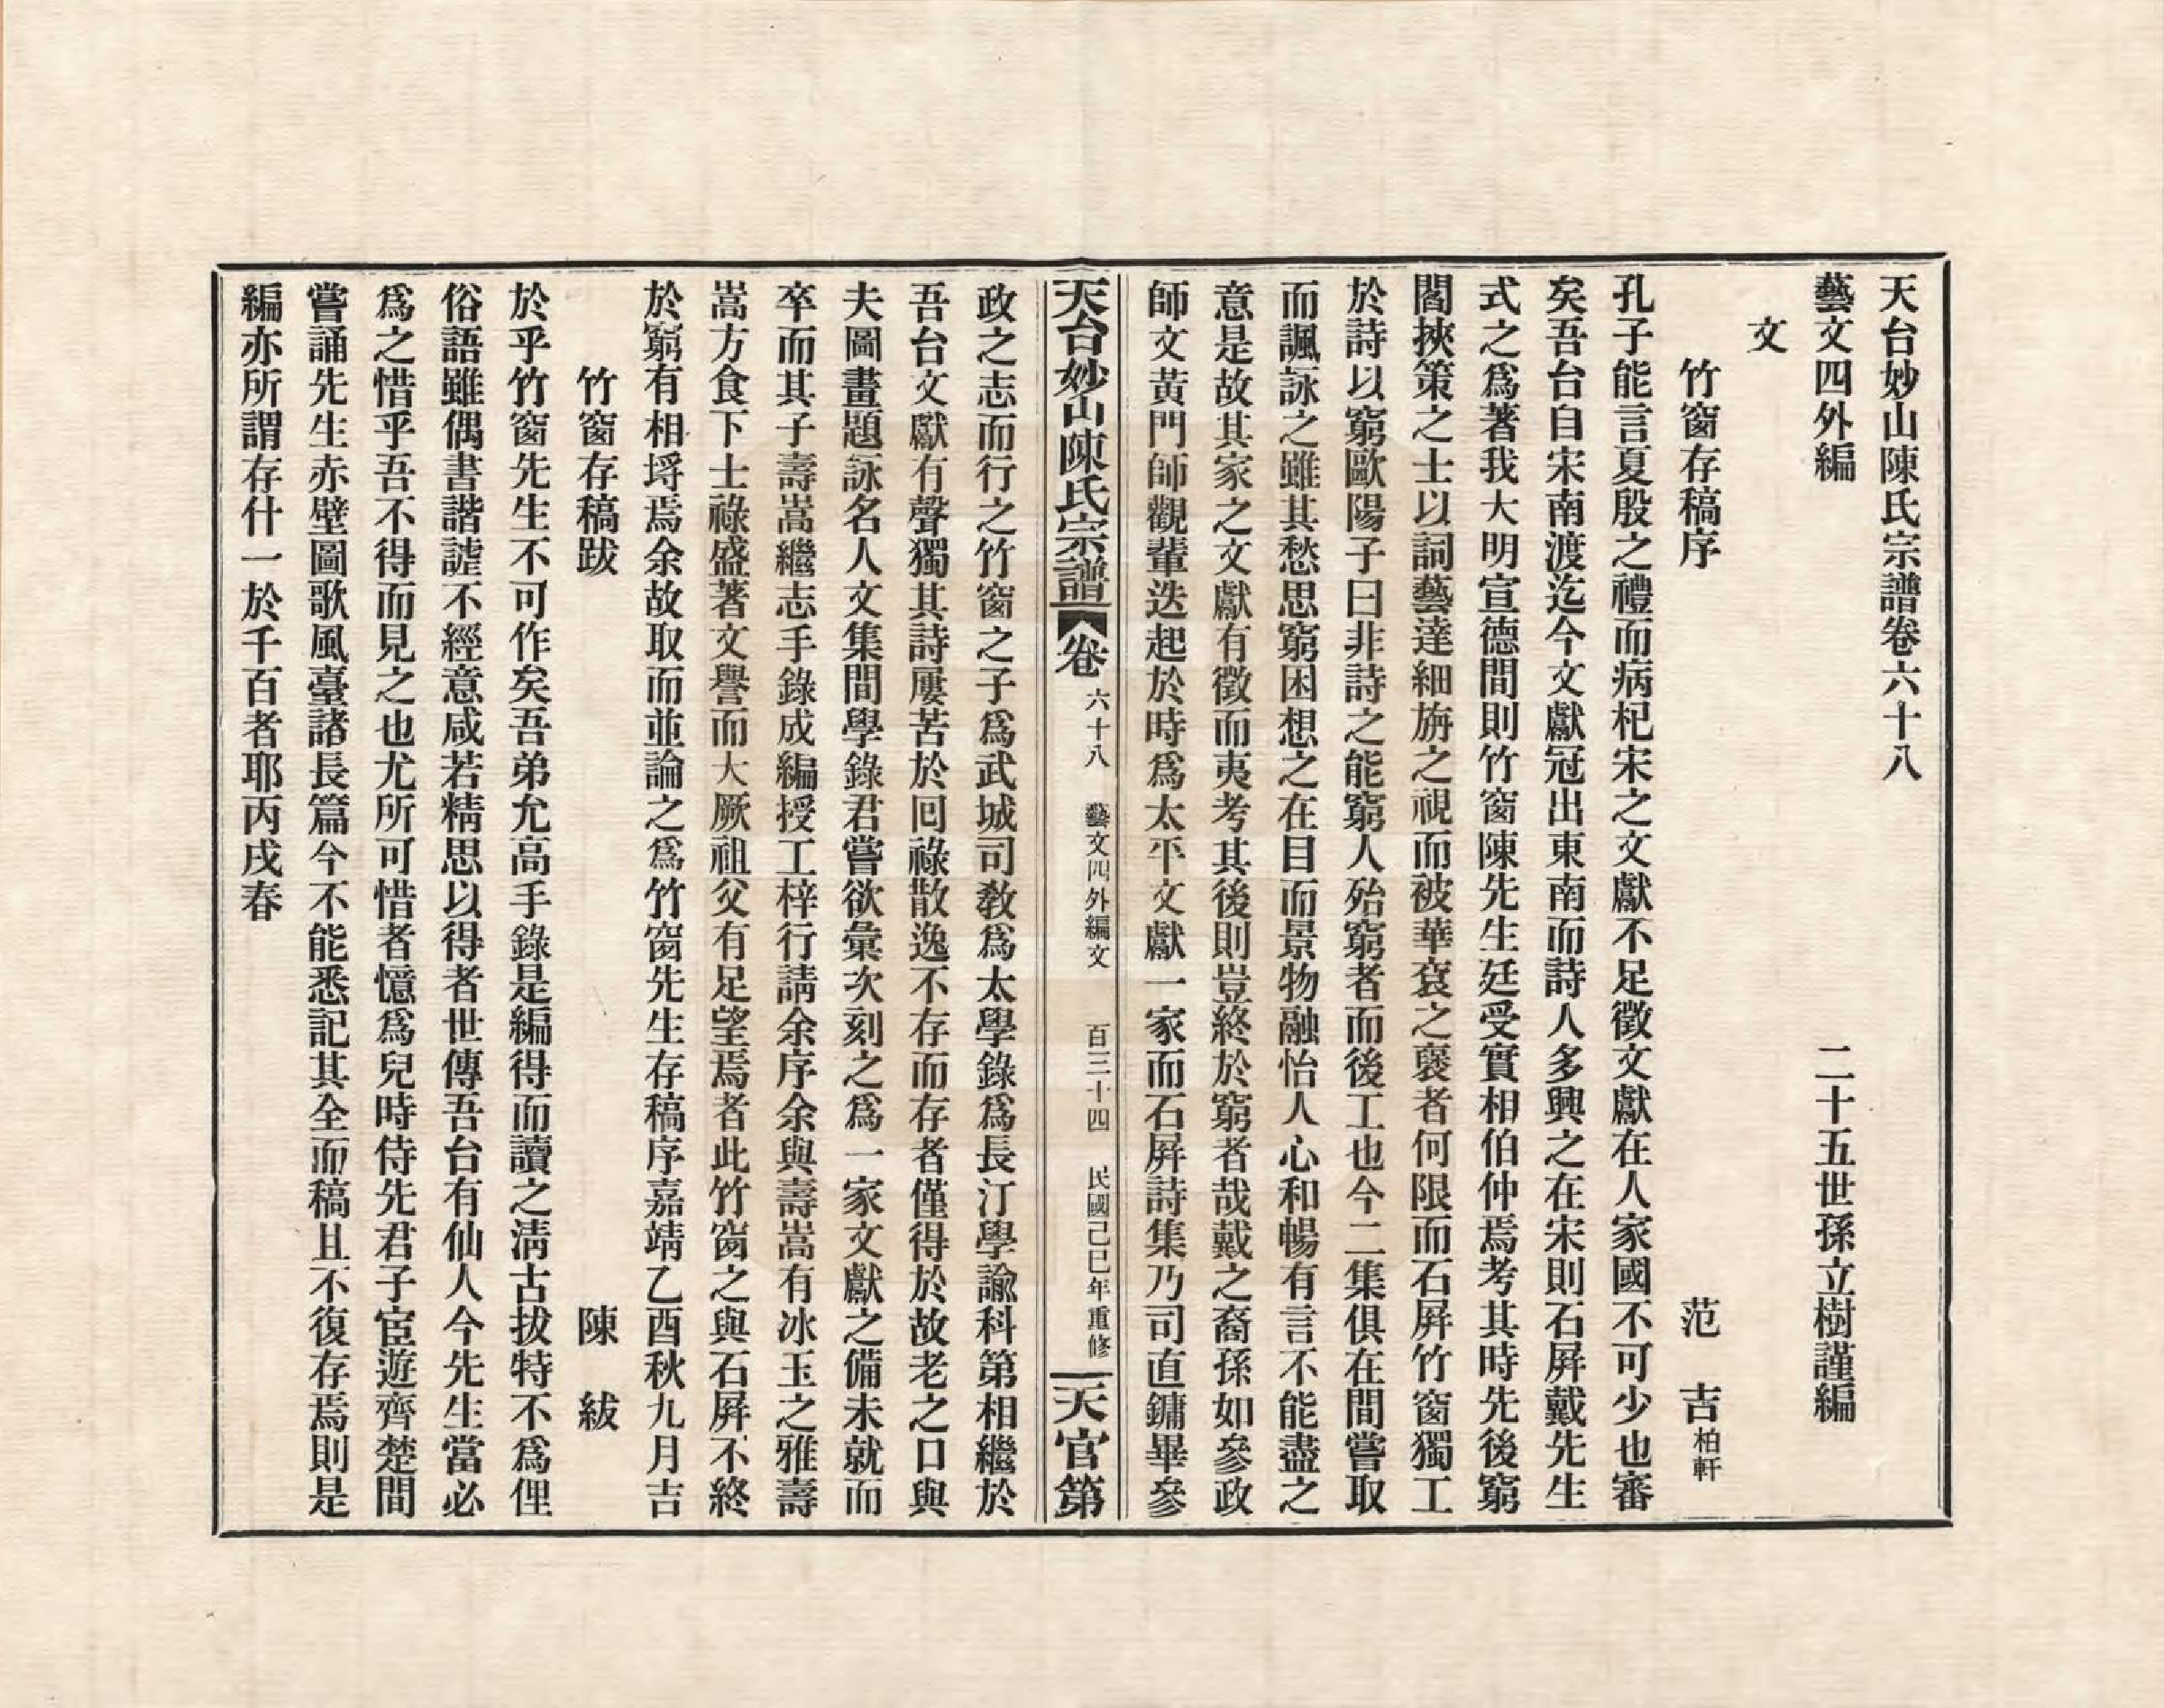 天台妙山陳氏宗譜卷六十八
藝文四外編　二十五世孫立樹謹編
文
竹窗存稿序　范　吉柏軒
孔子能言夏殷之禮而病杞宋之文獻不足徵文獻在人家國不可少也審
矣吾台自宋南渡迄今文獻冠出東南而詩人多興之在宋則石屛戴先生
式之爲著我大明宣德間則竹窗陳先生廷受實相伯仲焉考其時先後窮
閻挾策之士以詞藝達細旃之視而被華袞之襃者何限而石屛竹窗獨工
於詩以窮歐陽子曰非詩之能窮人殆窮者而後工也今二集俱在間嘗取
而諷詠之雖其愁思窮困想之在目而景物融怡人心和暢有言不能盡之
意是故其家之文獻有徵而夷考其後則豈終於窮者哉戴之裔孫如參政
師文黃門師觀輩迭起於時爲太平文獻一家而石屛詩集乃司直鏞畢參
天台妙山陳氏宗譜　卷六十八　藝文四外編文　百三十四　民國己巳年重修　天官第
政之志而行之竹窗之子爲武城司敎爲太學錄爲長汀學諭科第相繼於
吾台文獻有聲獨其詩屢苦於回祿散逸不存而存者僅得於故老之口與
夫圖畫題詠名人文集間學錄君嘗欲彙次刻之爲一家文獻之備未就而
卒而其子壽嵩繼志手錄成編授工梓行請余序余與壽嵩有冰玉之雅壽
嵩方食下士祿盛著文譽而大厥祖父有足望焉者此竹窗之與石屛不終
於窮有相埒焉余故取而並論之爲竹窗先生存稿序嘉靖乙酉秋九月吉
竹窗存稿跋　陳　紱
於乎竹窗先生不可作矣吾弟允高手錄是編得而讀之淸古拔特不爲俚
俗語雖偶書諧謔不經意咸若精思以得者世傳吾台有仙人今先生當必
爲之惜乎吾不得而見之也尤所可惜者憶爲兒時侍先君子宦遊齊楚間
嘗誦先生赤壁圖歌風臺諸長篇今不能悉記其全而稿且不復存焉則是
編亦所謂存什一於千百者耶丙戌春